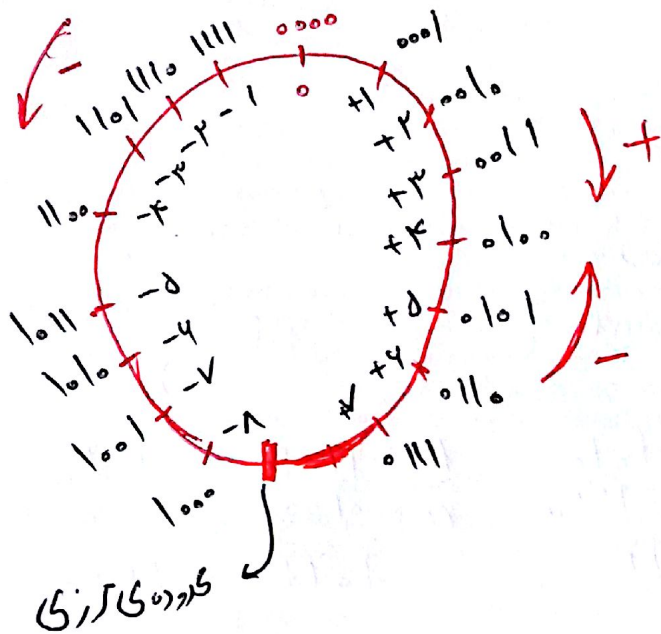 0000
0
0001
+۱
0010
+۲
0011
+۳
0100
+۴
0101
+۵
0110
+۶
0111
+۷
1000
-۸
1001
-۷
1010
-۶
1011
-۵
1100
-۴
1101
-۳
1110
-۲
1111
-۱
+
-
-